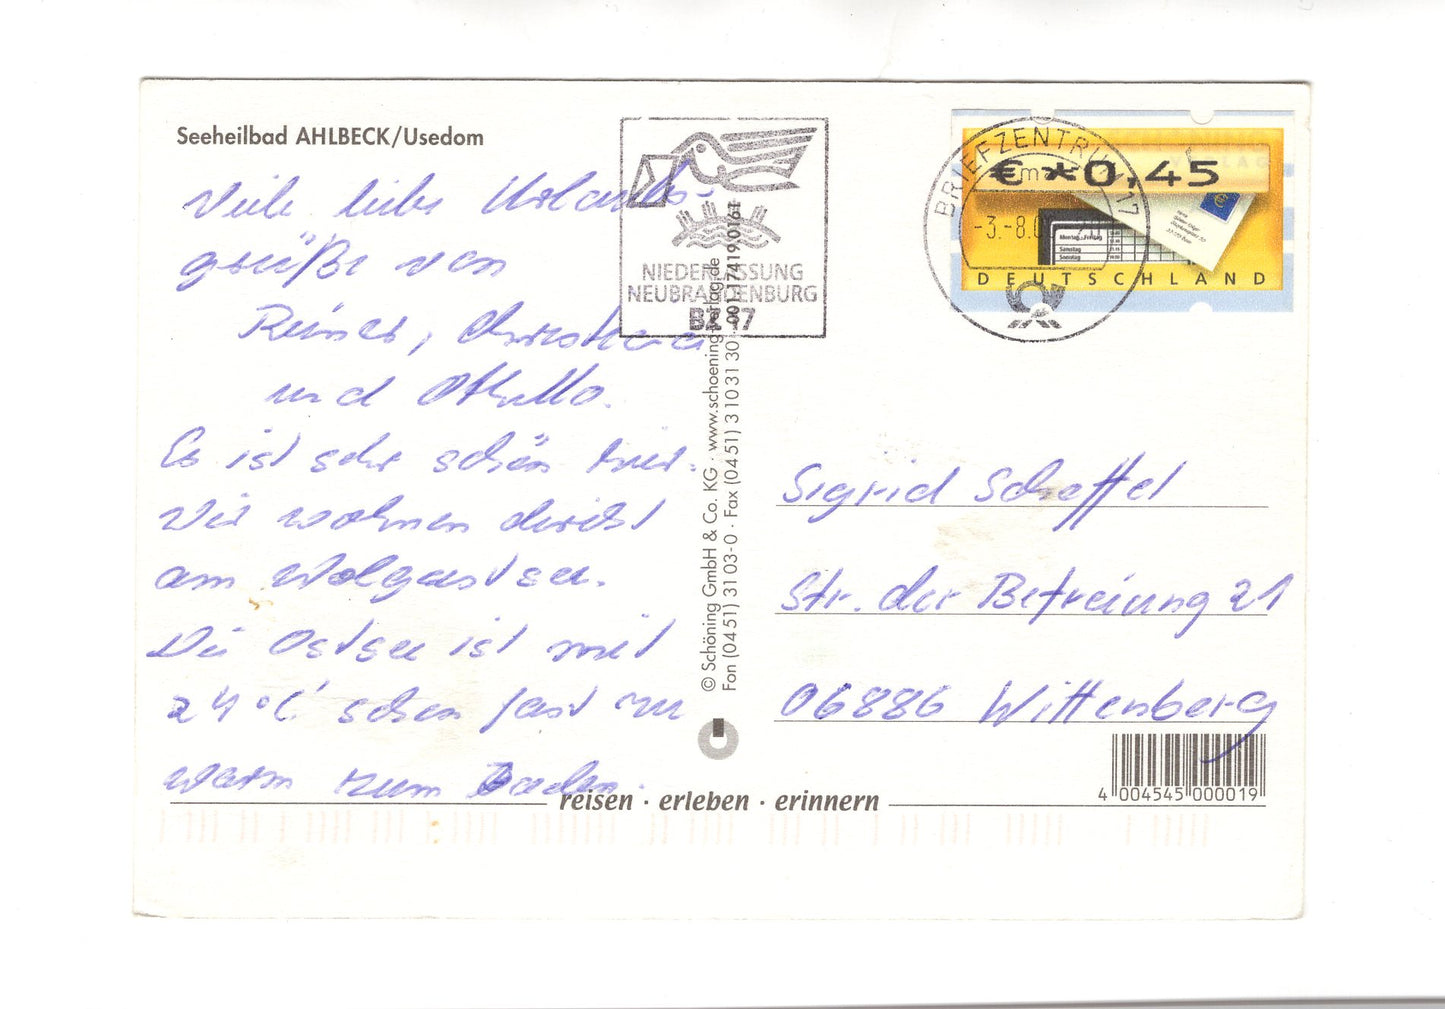 Seeheilbad AHLBECK/Usedom
Viele liebe Urlaubs-
grüße von
Reiner, Christina
und Othello.
Es ist sehr schön hier.
Wir wohnen direkt
am Wolgastsee.
Die Ostsee ist mit
24°C schon fast zu
warm zum Baden.
NIEDERLASSUNG
NEUBRANDENBURG
BZ 17
© Schöning GmbH & Co. KG · www.schoening-verlag.de
Fon (04 51) 31 03-0 · Fax (04 51) 3 10 31 30
001 17419 0161
BRIEFZENTRUM 17
-3.-8.0
€ *0,45
Montag - Freitag
Samstag
Sonntag
DEUTSCHLAND
Sigrid Scheffel
Str. der Befreiung 21
06886 Wittenberg
4 004545 000019
reisen · erleben · erinnern